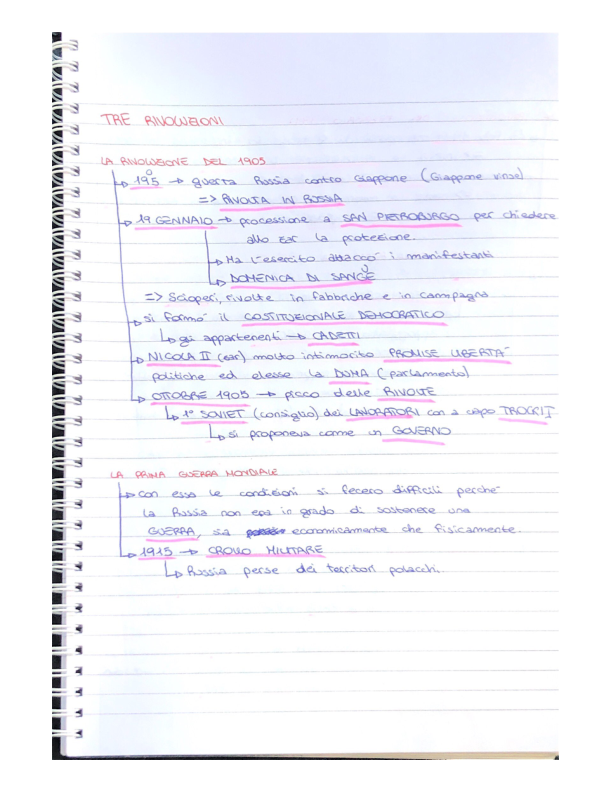 TRE RIVOLUZIONI
LA RIVOLUZIONE DEL 1905
1905 → guerra Russia contro Giappone (Giappone vinse)
=> RIVOLTA IN RUSSIA
19 GENNAIO → processione a SAN PIETROBURGO per chiedere
allo zar la protezione.
↳ Ma l'esercito attaccò i manifestanti
↳ DOMENICA DI SANGUE
=> Scioperi, rivolte in fabbriche e in campagna
↳ si formò il COSTITUZIONALE DEMOCRATICO
↳ gli appartenenti → CADETTI
↳ NICOLA II (zar) molto intimorito PROMISE LIBERTÀ
politiche ed elesse la DUMA (parlamento)
↳ OTTOBRE 1905 → picco delle RIVOLTE
↳ 1° SOVIET (consiglio) dei LAVORATORI con a capo TROCKIJ
↳ si proponeva come un GOVERNO
LA PRIMA GUERRA MONDIALE
↳ con essa le condizioni si fecero difficili perché
la Russia non era in grado di sostenere una
GUERRA, sia economicamente che fisicamente.
↳ 1915 → CROLLO MILITARE
↳ Russia perse dei territori polacchi.